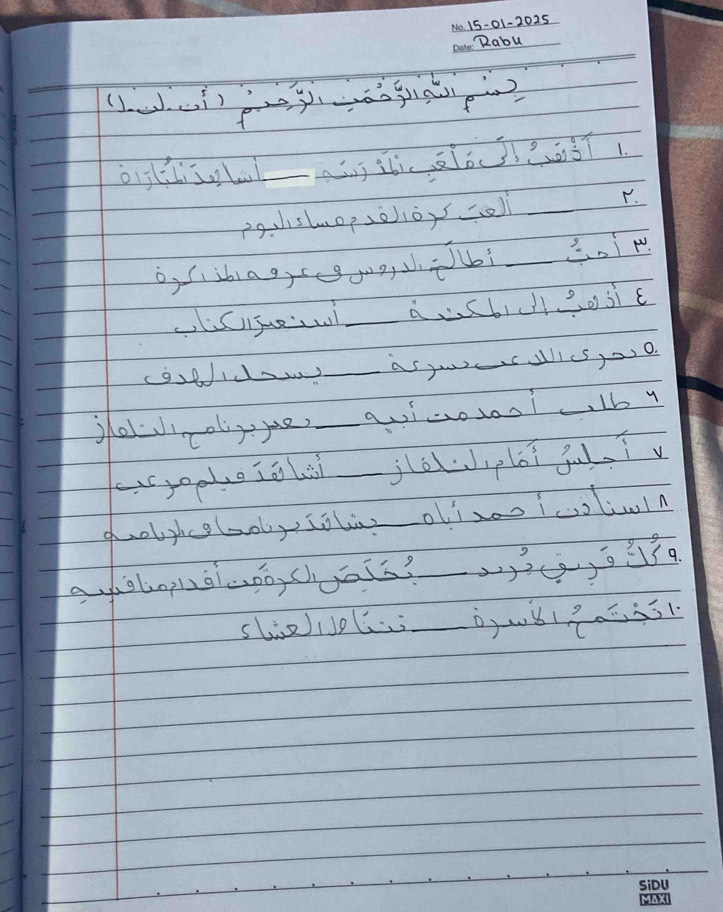 No. 15-01-2025
Date: Rabu
بِسْمِ اللهِ الرَّحْمَنِ الرَّحِيْمِ (أن. لن. لـ)
١. أَذْهَبُ إِلَى مَلْعَبِ المدرسة ___ أشاهد المباراة
٢. ___ ألعب كرة القدم مساء اليوم
٣. أحبُّ ___ أطالع الدروس في غرفة المذاكرة
٤ أذهبُ إلى المكتبة ___ أستعير الكتاب
٥. يجري اللاعب بسرعة ___ يسجل الهدف
٦ طلب أحمد من أبيه ___ يغير برنامج التلفاز
٧ أجلسُ أمام التلفاز ___ أشاهد فيلم مرعب
٨ استأذن أحمد أباه ___ يشاهد برنامجا رياضيه
٩. كُلُّ فريق يُريد ___ يُخلص الكرة من أقدام منافسيه
١٠ تَجْتَمِعُ الأسرة ___ نتناول العشاء
SiDU
MAXI